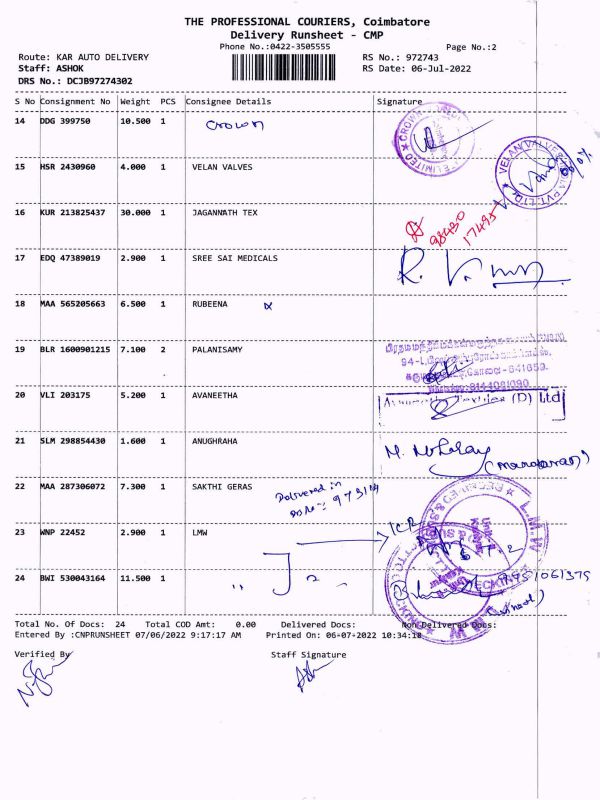 THE PROFESSIONAL COURIERS, Coimbatore
Delivery Runsheet - CMP
Phone No.:0422-3505555
Page No.:2
Route: KAR AUTO DELIVERY
RS No.: 972743
Staff: ASHOK
RS Date: 06-Jul-2022
DRS No.: DCJB97274302
S No Consignment No Weight PCS Consignee Details Signature
14 DDG 399750 10.500 1 Crown
15 HSR 2430960 4.000 1 VELAN VALVES
16 KUR 213825437 30.000 1 JAGANNATH TEX
98430
17495
17 EDQ 47389019 2.900 1 SREE SAI MEDICALS
18 MAA 565205663 6.500 1 RUBEENA
19 BLR 1600901215 7.100 2 PALANISAMY
20 VLI 203175 5.200 1 AVANEETHA
(D) Ltd
21 SLM 298854430 1.600 1 ANUGHRAHA
22 MAA 287306072 7.300 1 SAKTHI GERAS
Delivered in
23 WNP 22452 2.900 1 LMW
24 BWI 530043164 11.500 1
L.M.W
Total No. Of Docs: 24 Total COD Amt: 0.00 Delivered Docs: Non Delivered Docs:
Entered By :CNPRUNSHEET 07/06/2022 9:17:17 AM Printed On: 06-07-2022 10:34:18
Verified By
Staff Signature